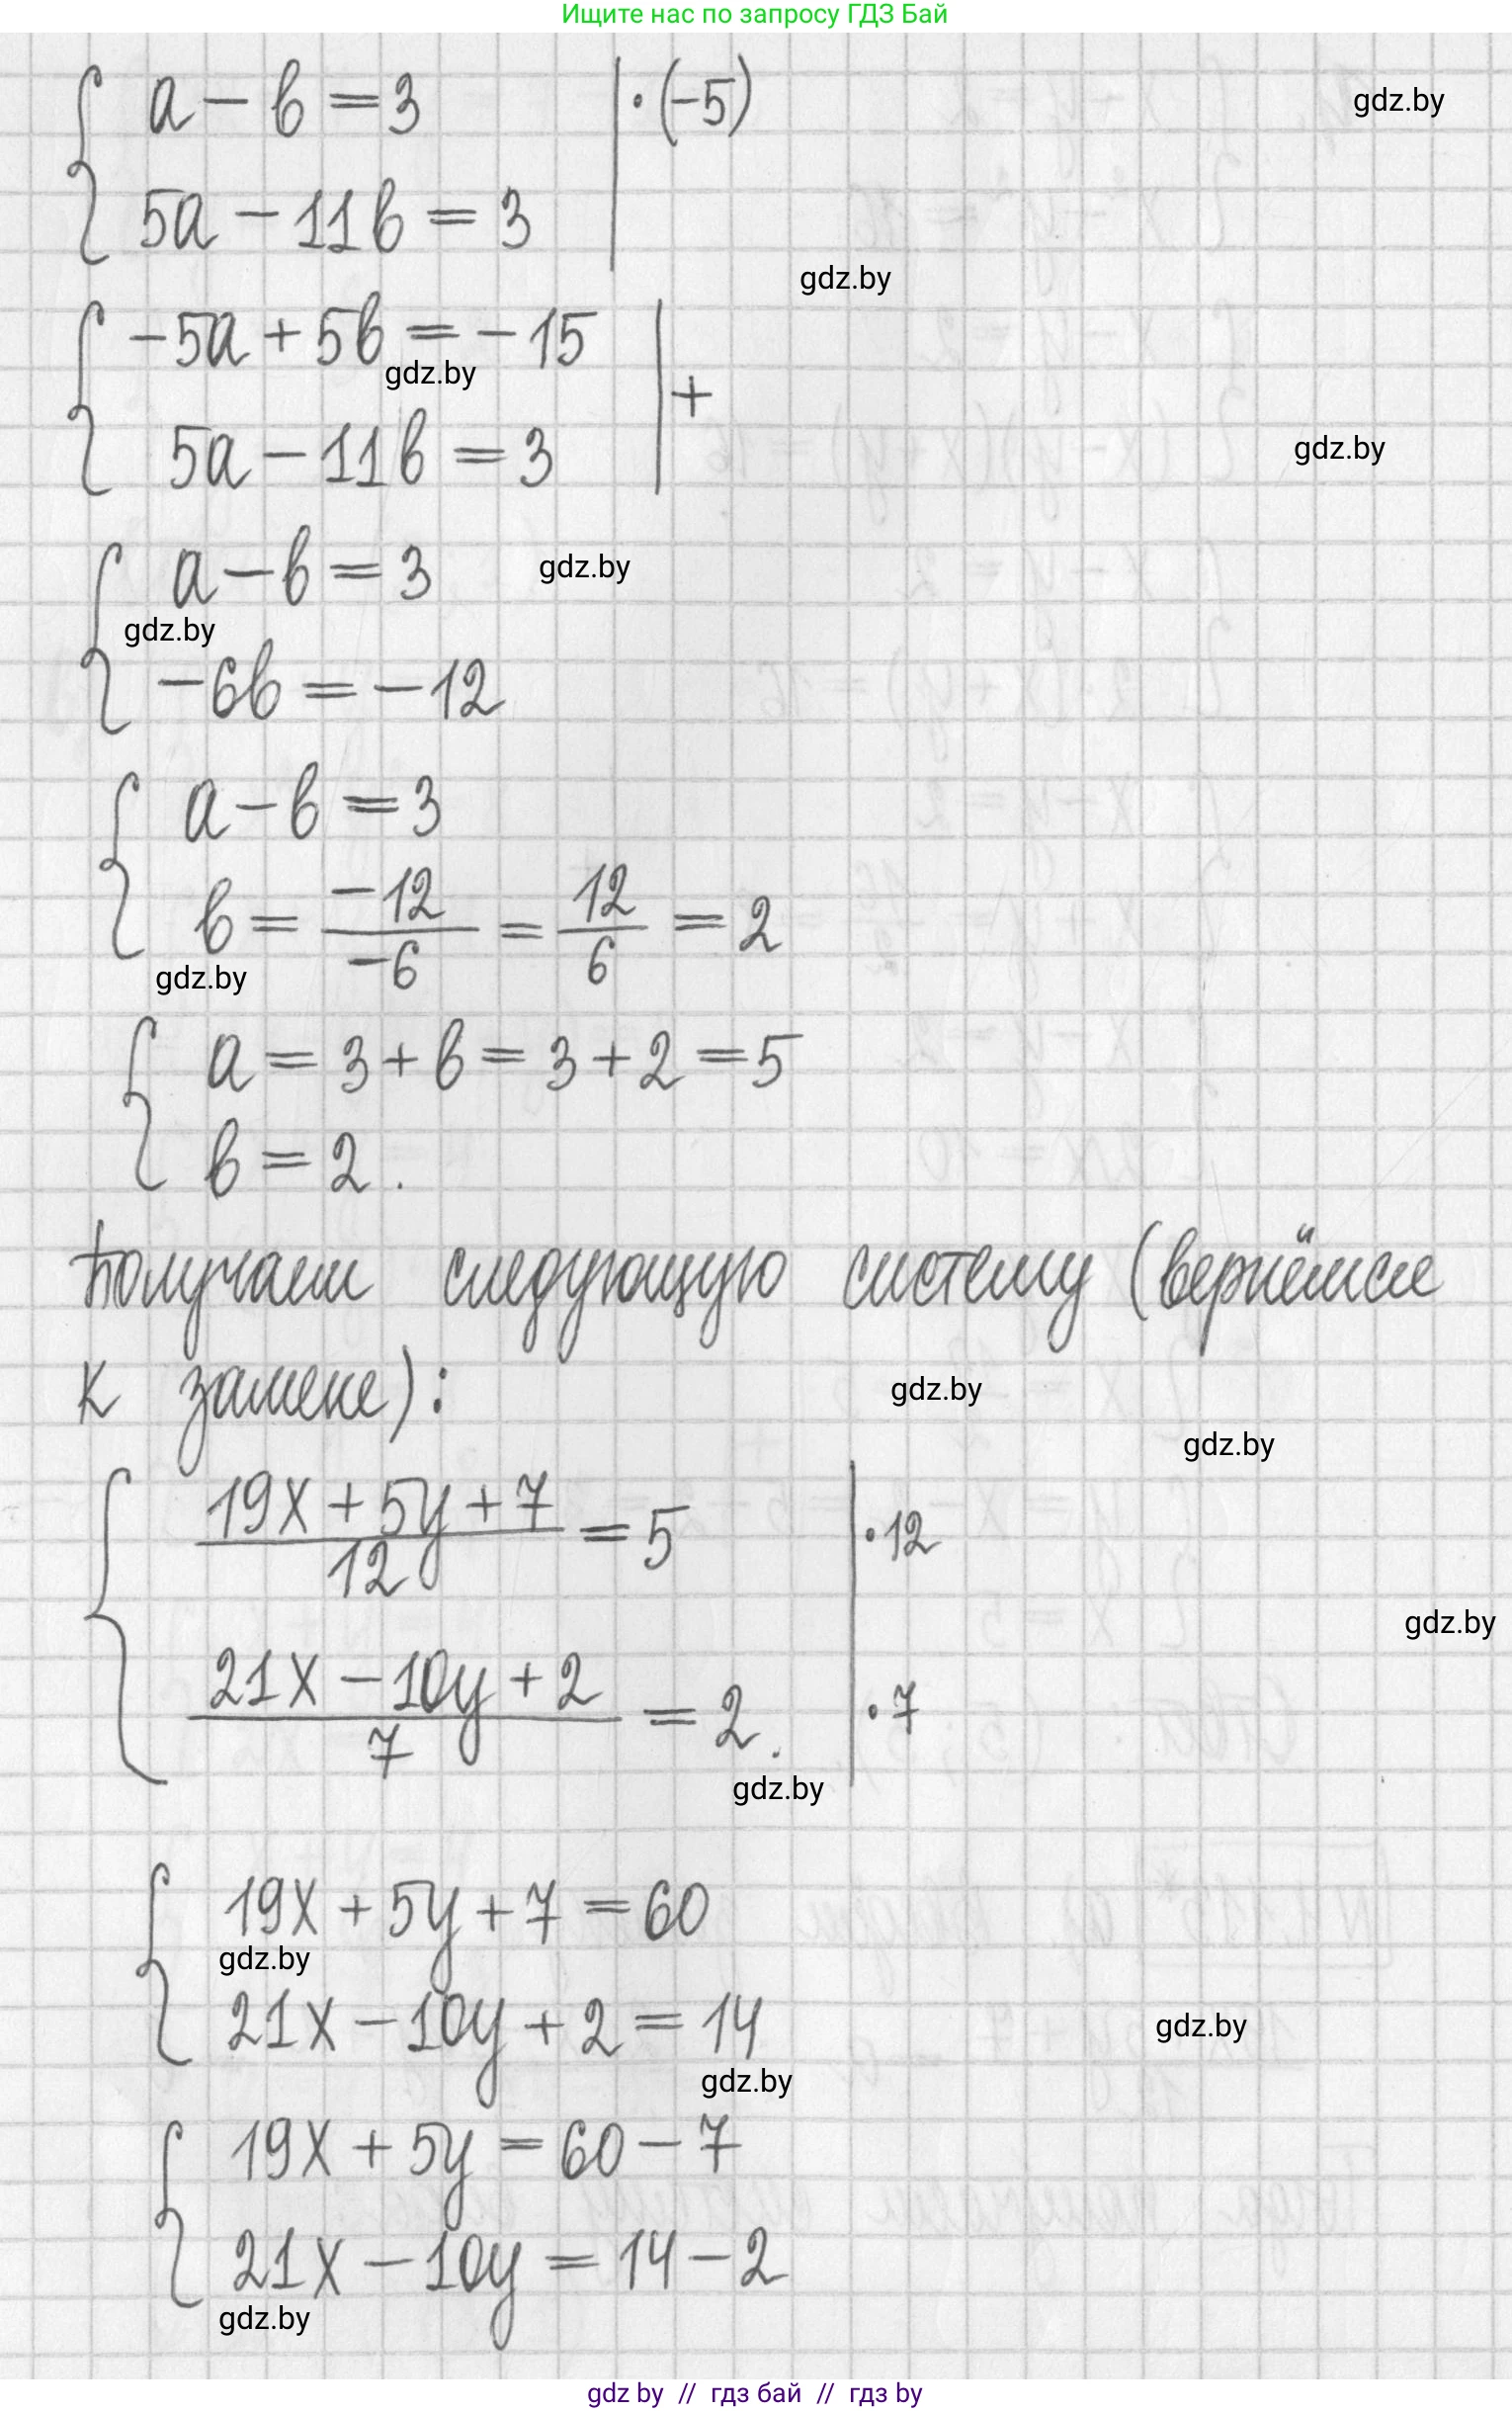 Ищите нас по запросу ГДЗ Бай
a - b = 3 | · (-5)
gdz.by
5a - 11b = 3
gdz.by
-5a + 5b = -15
gdz.by
+
5a - 11b = 3
gdz.by
a - b = 3
gdz.by
gdz.by
-6b = -12
a - b = 3
b = -12/-6 = 12/6 = 2
gdz.by
a = 3 + b = 3 + 2 = 5
b = 2.
Получаем следующую систему (вернёмся
к замене):
gdz.by
gdz.by
19x + 5y + 7 / 12 = 5 | · 12
gdz.by
21x - 10y + 2 / 7 = 2. | · 7
gdz.by
19x + 5y + 7 = 60
gdz.by
21x - 10y + 2 = 14
gdz.by
gdz.by
19x + 5y = 60 - 7
21x - 10y = 14 - 2
gdz.by
gdz by // гдз бай // гдз by